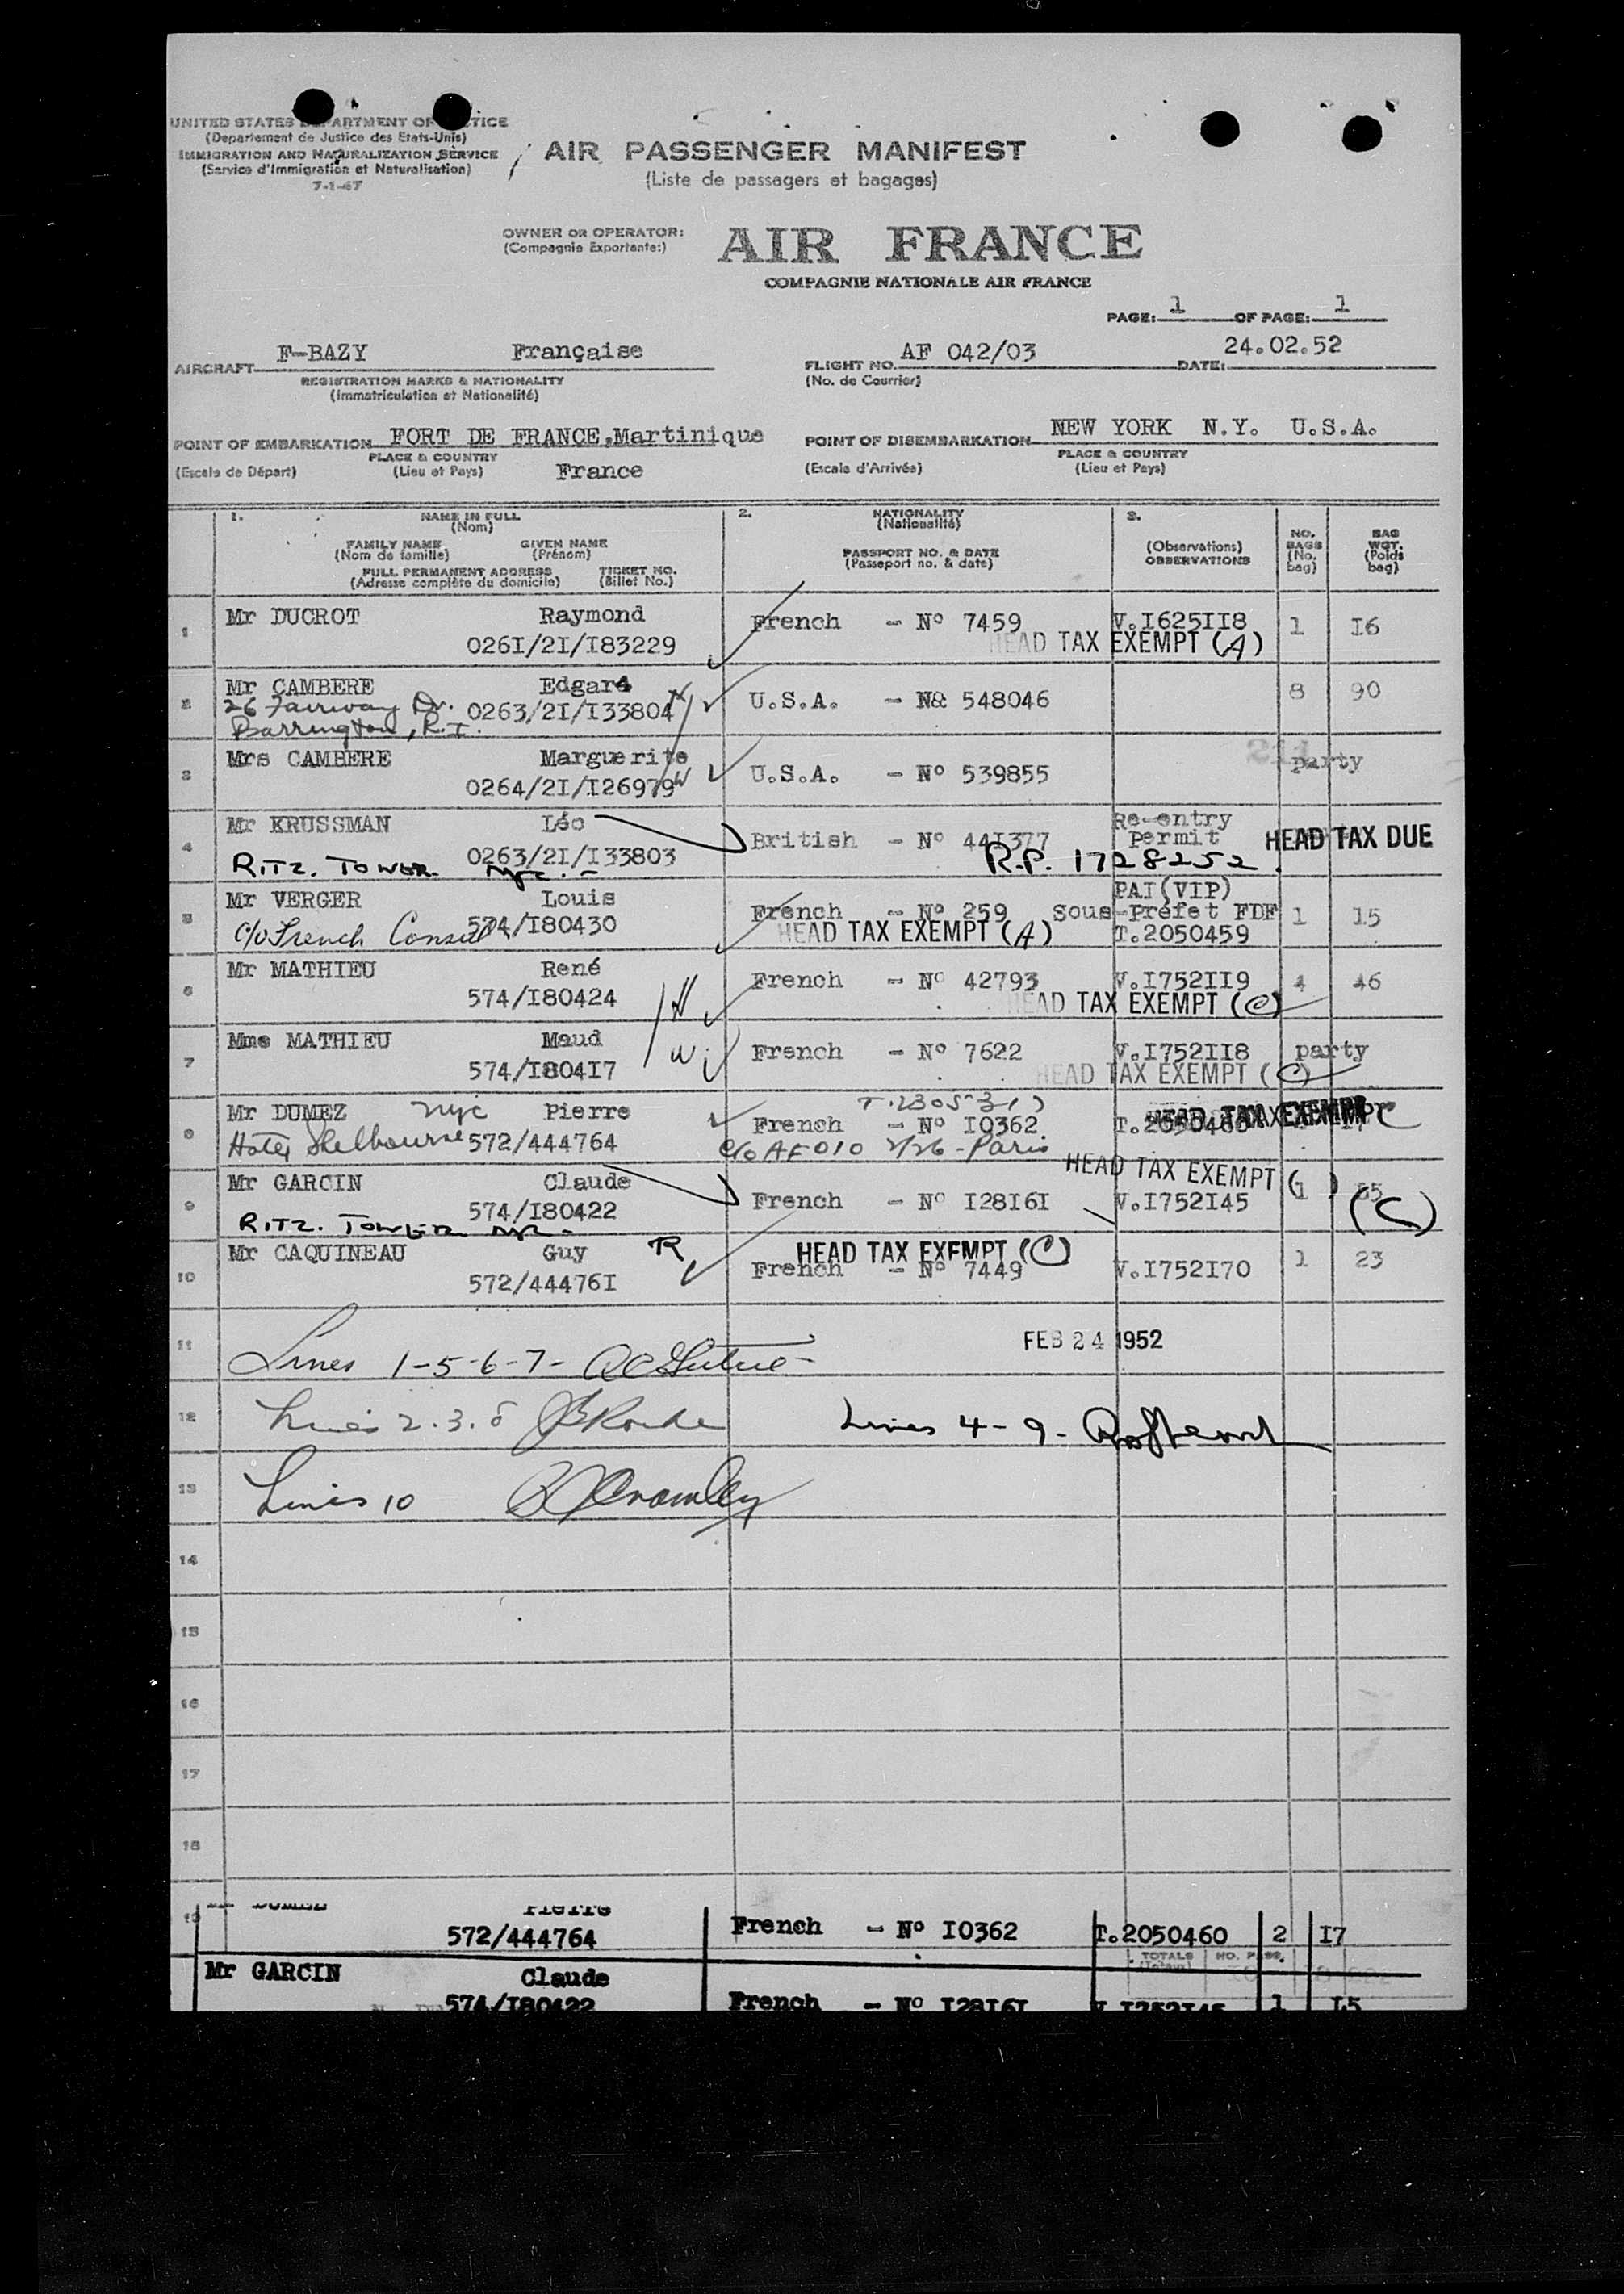 UNITED STATES DEPARTMENT OF JUSTICE
(Departement de Justice des Etats-Unis)
IMMIGRATION AND NATURALIZATION SERVICE
(Service d'Immigration et Naturalisation)
7-1-47
AIR PASSENGER MANIFEST
(Liste de passagers et bagages)
OWNER OR OPERATOR:
(Compagnie Exportante:)
AIR FRANCE
COMPAGNIE NATIONALE AIR FRANCE
PAGE: 1 OF PAGE: 1
AIRCRAFT F-BAZY Française
REGISTRATION MARKS & NATIONALITY
(Immatriculation et Nationalité)
FLIGHT NO. AF 042/03 DATE: 24.02.52
(No. de Courrier)
POINT OF EMBARKATION FORT DE FRANCE,Martinique
PLACE & COUNTRY
(Escale de Départ) (Lieu et Pays) France
POINT OF DISEMBARKATION NEW YORK N.Y. U.S.A.
PLACE & COUNTRY
(Escale d'Arrivée) (Lieu et Pays)
1. NAME IN FULL
(Nom)
FAMILY NAME GIVEN NAME
(Nom de famille) (Prénom)
FULL PERMANENT ADDRESS TICKET NO.
(Adresse complète du domicile) (Billet No.)
2. NATIONALITY
(Nationalité)
PASSPORT NO. & DATE
(Passeport no. & date)
3.
(Observations)
OBSERVATIONS
NO. BAGS (No. bag)
BAG WGT. (Poids bag)
1 Mr DUCROT Raymond French - Nº 7459 V.I625II8 1 I6
026I/2I/I83229 HEAD TAX EXEMPT (A)
2 Mr CAMBERE Edgard U.S.A. - N& 548046 8 90
26 Fairway Dr. 0263/2I/I33804 H
Barrington, R.I.
3 Mrs CAMBERE Marguerite U.S.A. - Nº 539855 party
0264/2I/I26979 W
4 Mr KRUSSMAN Léo British - Nº 44I377 Re-entry Permit HEAD TAX DUE
RITZ. TOWER. NYC. 0263/2I/I33803 R.P. 1728252
5 Mr VERGER Louis French - Nº 259 PAI(VIP) Sous-Préfet FDF 1 15
c/o French Consul 574/I80430 HEAD TAX EXEMPT (A) T.2050459
6 Mr MATHIEU René French - Nº 42793 V.I752II9 4 46
574/I80424 H HEAD TAX EXEMPT (C)
7 Mme MATHIEU Maud French - Nº 7622 V.I752II8 party
574/I804I7 W HEAD TAX EXEMPT (C)
8 Mr DUMEZ NYC Pierre French - Nº I0362 T.2050460 HEAD TAX EXEMPT C
Hotel Shelbourne 572/444764 c/o AF 010 2/26 - Paris
HEAD TAX EXEMPT ( )
9 Mr GARCIN Claude French - Nº I28I6I V.I752I45 1 (C)
RITZ. TOWER NYC - 574/I80422
10 Mr CAQUINEAU Guy R HEAD TAX EXEMPT (C)
572/44476I French - Nº 7449 V.I752I70 1 23
11 FEB 24 1952
Lines 1-5-6-7-
12 Lines 2.3.8 Lines 4-9-
13 Lines 10
14
15
16
17
18
19 Pierre
572/444764 French - Nº I0362 T.2050460 2 I7
TOTALS NO. PASS.
Mr GARCIN Claude
574/I80422 French - Nº I28I6I V.I752I45 1 I5